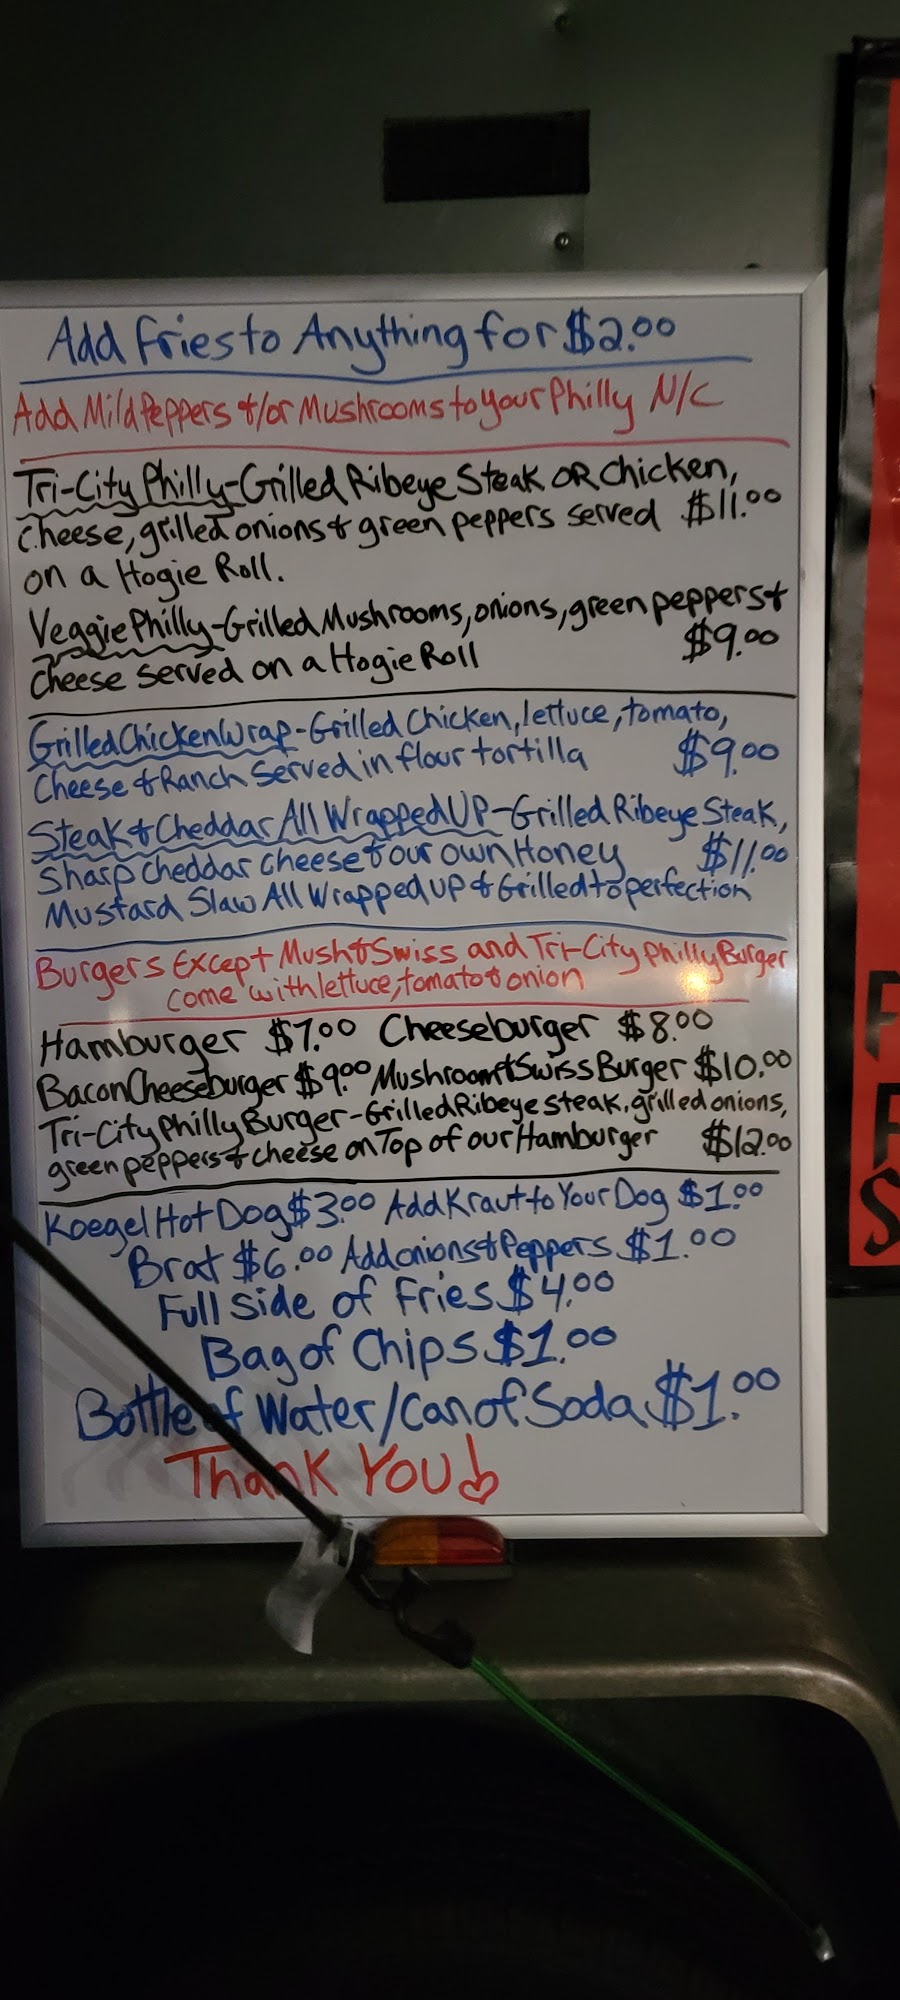 Add Fries to Anything for $2.00
Add Mild Peppers &/or Mushrooms to your Philly N/C
Tri-City Philly-Grilled Ribeye Steak OR Chicken,
cheese, grilled onions & green peppers served $11.00
on a Hogie Roll.
Veggie Philly-Grilled Mushrooms, onions, green peppers &
$9.00
cheese served on a Hogie Roll
Grilled Chicken Wrap-Grilled Chicken, lettuce, tomato,
Cheese & Ranch Served in flour tortilla $9.00
Steak & Cheddar All Wrapped UP-Grilled Ribeye Steak,
Sharp Cheddar Cheese & our own Honey $11.00
Mustard Slaw All Wrapped up & Grilled to perfection
Burgers Except Mush & Swiss and Tri-City Philly Burger
come with lettuce, tomato & onion
Hamburger $7.00 Cheeseburger $8.00
Bacon Cheeseburger $9.00 Mushroom & Swiss Burger $10.00
Tri-City Philly Burger-Grilled Ribeye steak, grilled onions,
green peppers & cheese on Top of our Hamburger $12.00
Koegel Hot Dog $3.00 Add Kraut to Your Dog $1.00
Brat $6.00 Add onions & Peppers $1.00
Full Side of Fries $4.00
Bag of Chips $1.00
Bottle of Water/Can of Soda $1.00
Thank You!